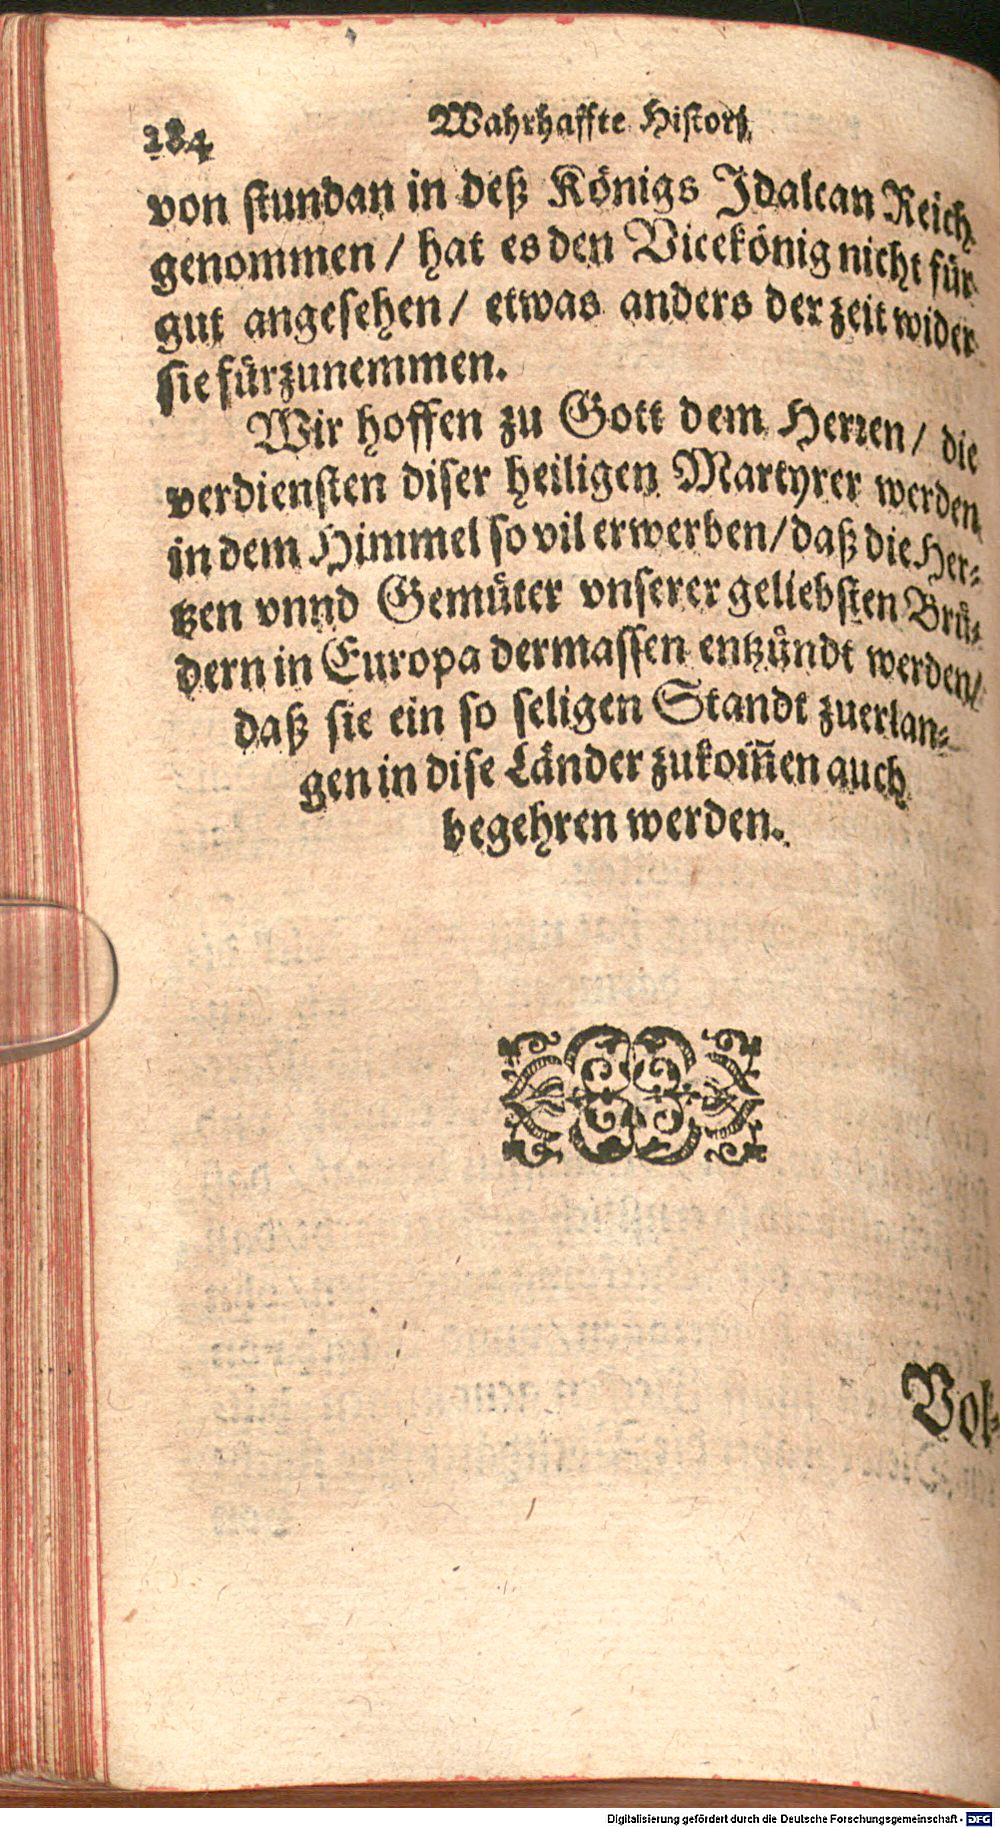 284
Wahrhaffte Histori
von stundan in deß Königs Idalcan Reich
genommen / hat es den Vicekönig nicht für
gut angesehen / etwas anders der zeit wider
sie fürzunemmen.
Wir hoffen zu Gott dem Herren / die
verdiensten diser heiligen Martyrer werden
in dem Himmel so vil erwerben / daß die Her⸗
tzen vnnd Gemüter vnserer geliebsten Brü⸗
dern in Europa dermassen entzündt werden /
daß sie ein so seligen Standt zuerlan⸗
gen in dise Länder zukom̃en auch
begehren werden.
Vol⸗
Digitalisierung gefördert durch die Deutsche Forschungsgemeinschaft - DFG